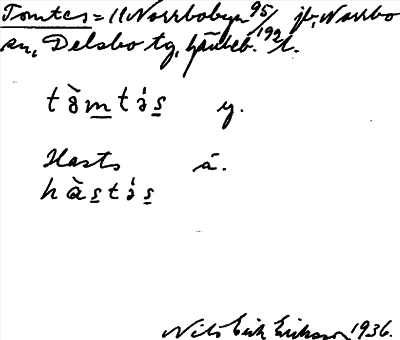 Tomtes = 11 Norrbobyn 95/192 jb, Norrbo
sn, Delsbo tg, Gävleb. l.
tòmtə́s y.
Hasts ä.
hàstə́s
Nils Erik Eriksson 1936.